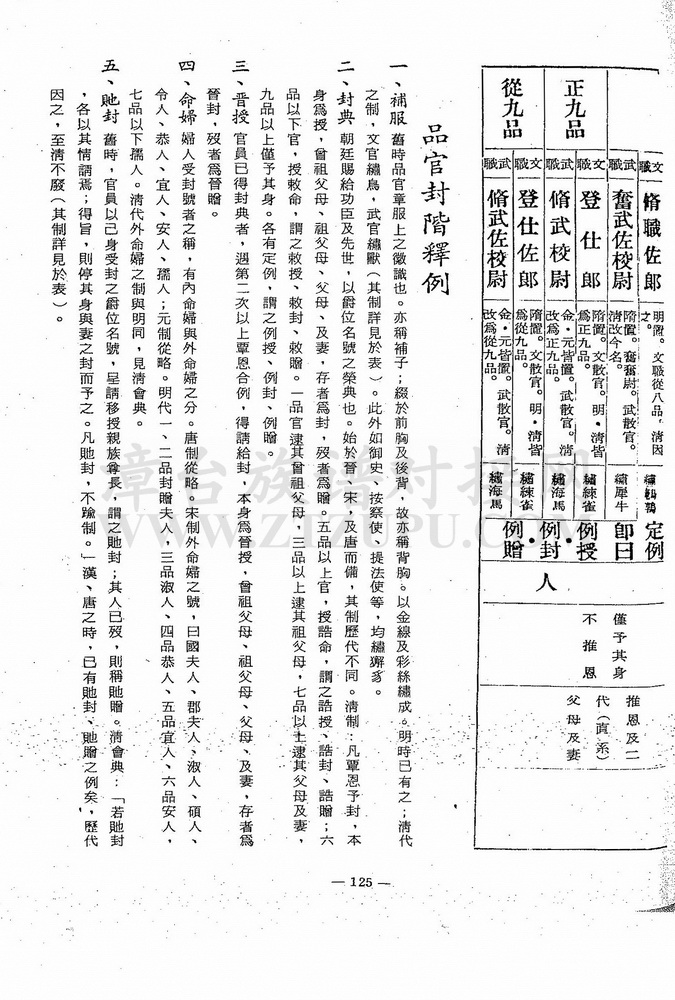 文職
脩職佐郎
明置。文職從八品，清因之。
武職
奮武佐校尉
隋置。奮奮尉。武散官。清改今名。
繡犀牛
正九品
文職
登仕郎
隋置。文散官。明・清皆爲正九品。
繡練雀
武職
脩武校尉
金・元皆置。武散官。清改爲正九品。
繡海馬
從九品
文職
登仕佐郎
隋置。文散官。明・清皆爲從九品。
繡練雀
武職
脩武佐校尉
金・元皆置。武散官。清改爲從九品。
繡海馬
定例
即曰
例授
・例封
・例贈
人
僅予其身
不推恩
推恩及二
代（直系）
父母及妻
品官封階釋例
一、補服　舊時品官章服上之徽識也。亦稱補子；綴於前胸及後背，故亦稱背胸。以金線及彩絲繡成。明時已有之；清代
之制，文官繡鳥，武官繡獸（其制詳見於表）。此外如御史、按察使、提法使等，均繡獬豸。
二、封典　朝廷賜給功臣及先世，以爵位名號之榮典也。始於晉、宋，及唐而備，其制歷代不同。清制：凡覃恩予封，本
身爲授，曾祖父母、祖父母、父母、及妻，存者爲封，歿者爲贈。五品以上官，授誥命，謂之誥授、誥封、誥贈；六
品以下官，授敕命，謂之敕授、敕封、敕贈。一品官逮其曾祖父母，三品以上逮其祖父母，七品以上逮其父母及妻，
九品以上僅予其身。各有定例，謂之例授、例封、例贈。
三、晋授　官員已得封典者，遇第二次以上覃恩合例，得請給封，本身爲晉授，曾祖父母、祖父母、父母、及妻，存者爲
晉封，歿者爲晉贈。
四、命婦　婦人受封號者之稱，有內命婦與外命婦之分。唐制從略。宋制外命婦之號，曰國夫人、郡夫人、淑人、碩人、
令人、恭人、宜人、安人、孺人；元制從略。明代一、二品封贈夫人，三品淑人、四品恭人、五品宜人、六品安人，
七品以下孺人。清代外命婦之制與明同，見清會典。
五、貤封　舊時，官員以己身受封之爵位名號，呈請移授親族尊長，謂之貤封；其人已歿，則稱貤贈。清會典：「若貤封
，各以其情請焉；得旨，則停其身與妻之封而予之。凡貤封，不踰制。」漢、唐之時，已有貤封、貤贈之例矣，歷代
因之，至清不廢（其制詳見於表）。
— 125 —